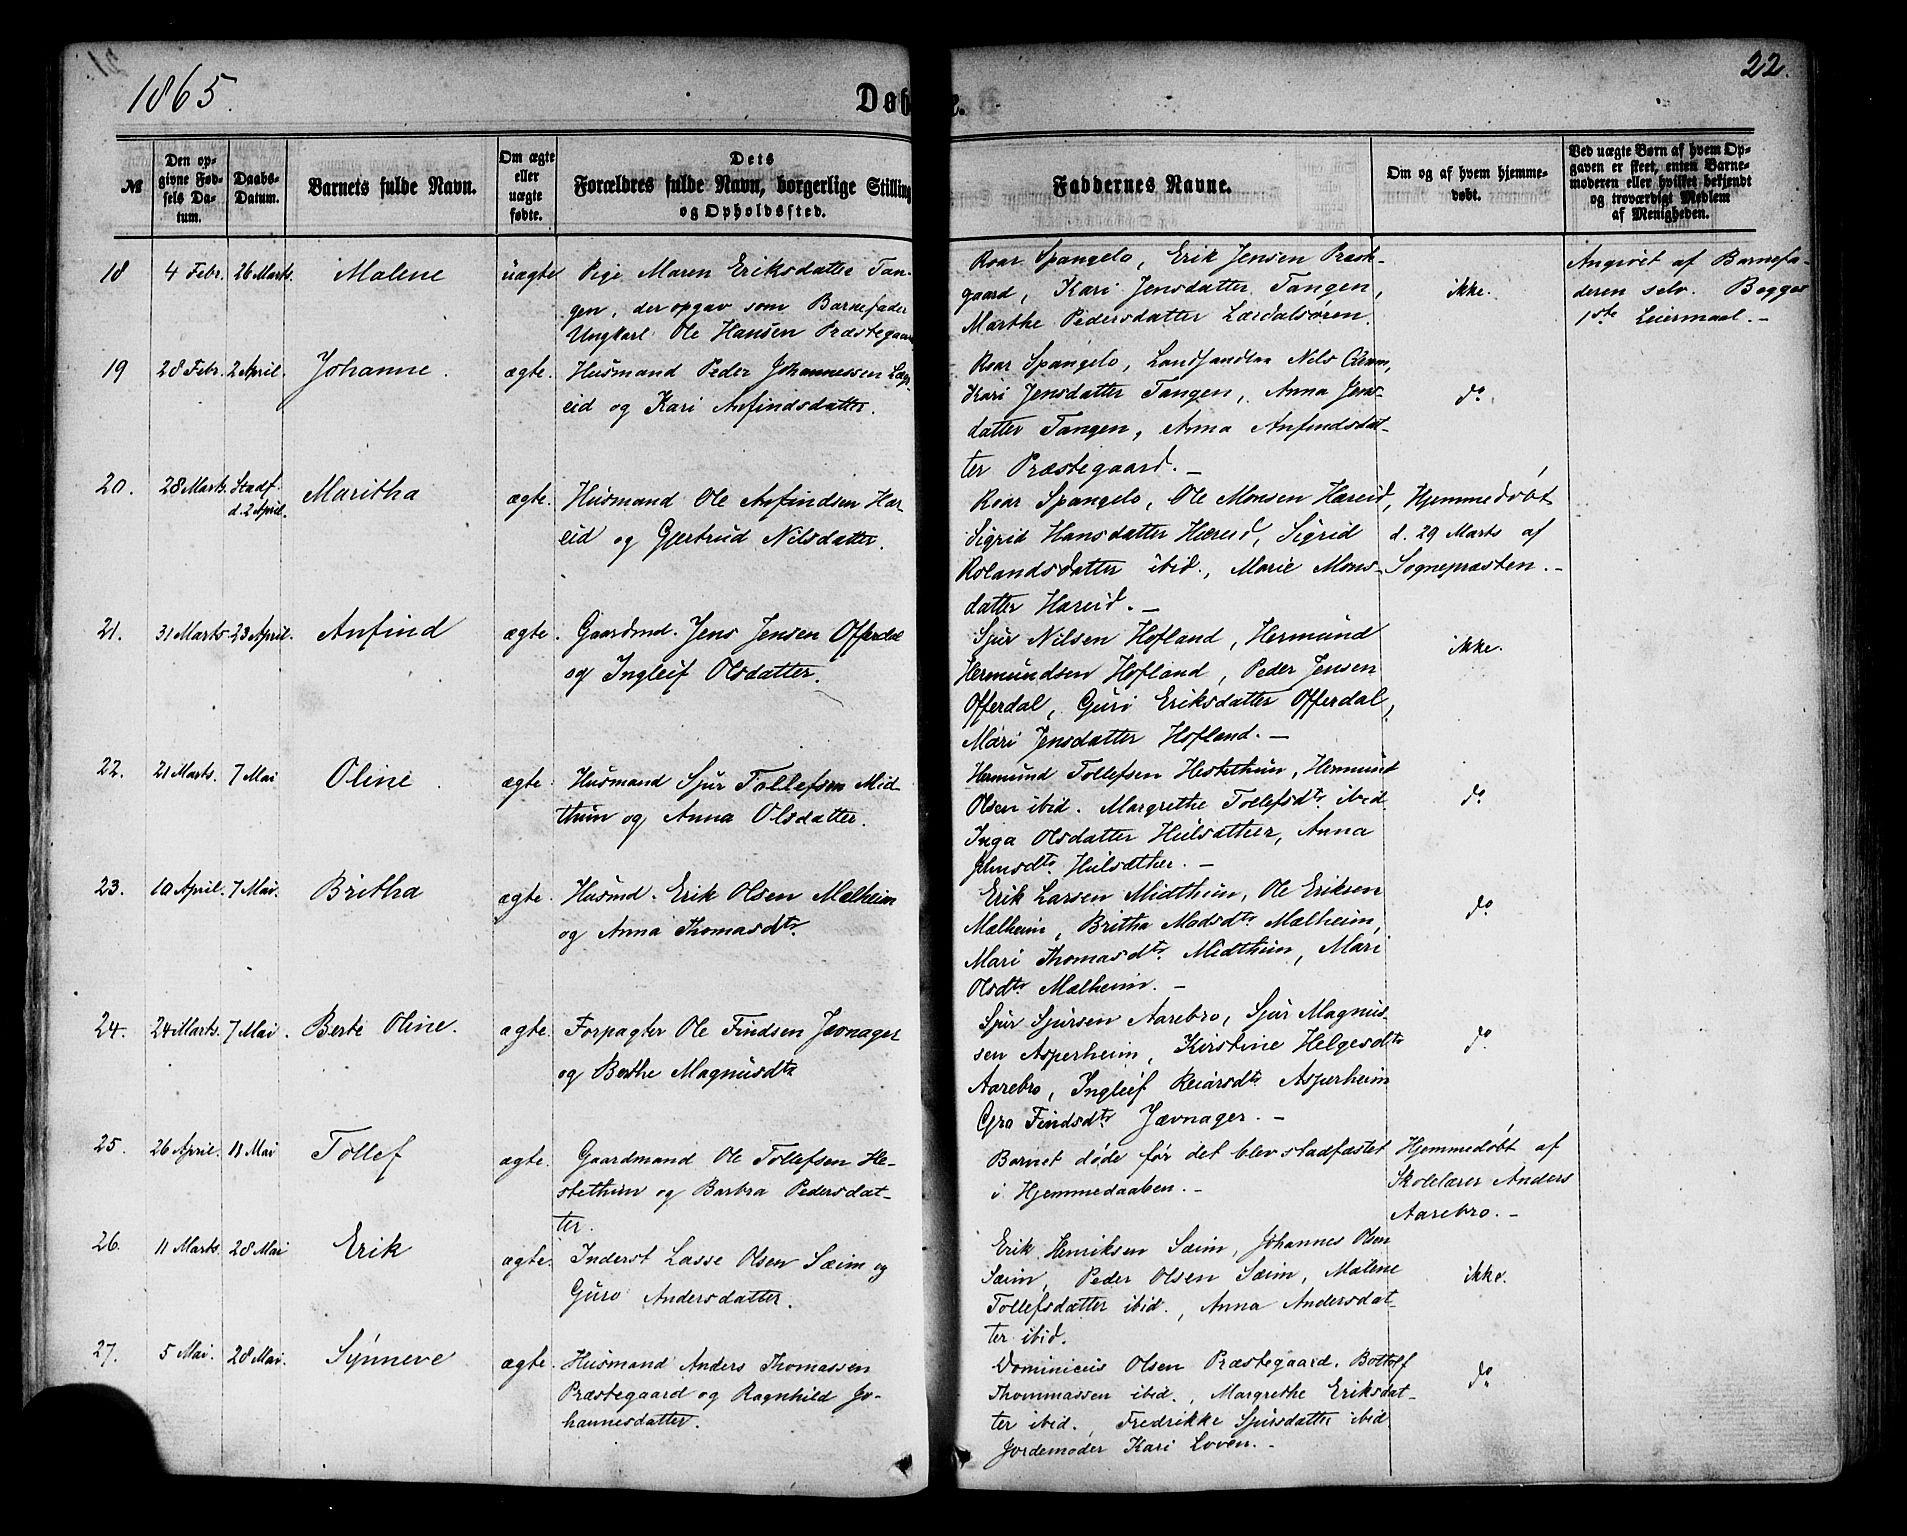 1865.
22.
Døbte.
№
Den op-
givne Fød-
sels Da-
tum.
Daabs-
Datum.
Barnets fulde Navn.
Om ægte
eller
uægte
fødte.
Dets
Forældres fulde Navn, borgerlige Stilling
og Opholdssted.
Faddernes Navne.
Om og af hvem hjemme-
døbt.
Ved uægte Børn af hvem Op-
gaven er skeet, enten Barne-
moderen eller hvilket bekjendt
og troværdigt Medlem
af Menigheden.
18 4 Febr. 26 Marts. Malene uægte
Pige Maren Eriksdatter Tan-
gen, der opgav som Barnefader
Ungkarl Ole Hansen Præstegaar
Roar Spangelo, Erik Jensen Præste-
gaard, Kari Jensdatter Tangen,
Marthe Pedersdatter Lærdalsøren.
ikke.
Angivet af Barnefa-
deren selv. Begges
1ste Leiermaal. -
19 28 Febr. 2 April. Johanne. ægte.
Husmand Peder Johannessen Læg-
eid og Kari Anfindsdatter.
Roar Spangelo, Landhandler Nils
Kari Jensdatter Tangen, Anna Jens-
datter Tangen, Anna Anfindsdat-
ter Præstegaard. -
do
20. 28 Marts. Stadf.
d. 2 April. Maritha ægte.
Husmand Ole Anfindsen Hæ-
reid og Gjertrud Nilsdatter.
Roar Spangelo, Ole Monsen Hæreid,
Sigrid Hansdatter Hæreid, Sigrid
Rolandsdatter ibid., Marie Mons-
datter Hæreid. -
Hjemmedøbt
d. 29 Marts af
Sognepræsten. -
21. 31 Marts 23 April. Anfind ægte.
Gaardmd. Jens Jensen Offerdal
og Ingleif Olsdatter.
Sjur Nilsen Hofland, Hermund
Hermundsen Hofland, Peder Jensen
Offerdal, Guri Eriksdatter Offerdal,
Mari Jensdatter Hofland. -
ikke.
22. 21 Marts. 7 Mai Oline. ægte.
Husmand Sjur Tollefsen Mid-
thun og Anna Olsdatter.
Hermund Tollefsen Hestethun, Hermund
Olsen ibid. Margrethe Tollefsdtr ibid
Inga Olsdatter Hulsæther, Anna
Jensdtr Hulsæther. -
do
23. 10 April. 7 Mai. Britha ægte.
Husmd. Erik Olsen Mælheim
og Anna Thomasdtr.
Erik Larsen Midthun, Ole Eriksen
Mælheim, Britha Madsdtr Mælheim,
Mari Thomasdtr. Midthun, Mari
Olsdtr Mælheim. -
do
24. 24 Marts. 7 Mai. Berte Oline. ægte.
Forpagter Ole Findsen Jevnager
og Berthe Magnusdtr
Sjur Sjursen Aarebro, Sjur Magnus-
sen Asperheim, Kirstine Helgesdtr
Aarebro, Ingleif Reiarsdtr Asperheim
Gro Findsdtr Jævnager. -
do
25. 26 April. 11 Mai Tollef ægte.
Gaardmand Ole Tollefsen He-
stethun og Barbra Pedersdat-
ter.
Barnet døde før det blev stadfæstet
i Hjemmedaaben. -
Hjemmedøbt af
Skolelærer Anders
Aarebro. -
26. 11 Marts. 28 Mai Erik ægte.
Inderst Lasse Olsen Sæim og
Guro Andersdatter.
Erik Henriksen Sæim, Johannes Olsen
Sæim, Peder Olsen Sæim, Malene
Tollefsdatter ibid., Anna Andersdat-
ter ibid.
ikke.
27. 5 Mai. 28 Mai. Synneve ægte.
Husmand Anders Thomassen
Præstegaard og Ragnhild Jo-
hannesdatter.
Dominicus Olsen Præstegaard. Bottolf
Thommassen ibid., Margrethe Eriksdat-
ter ibid., Fredrikke Sjursdatter ibid,
Jordemoder Kari Loven. -
do